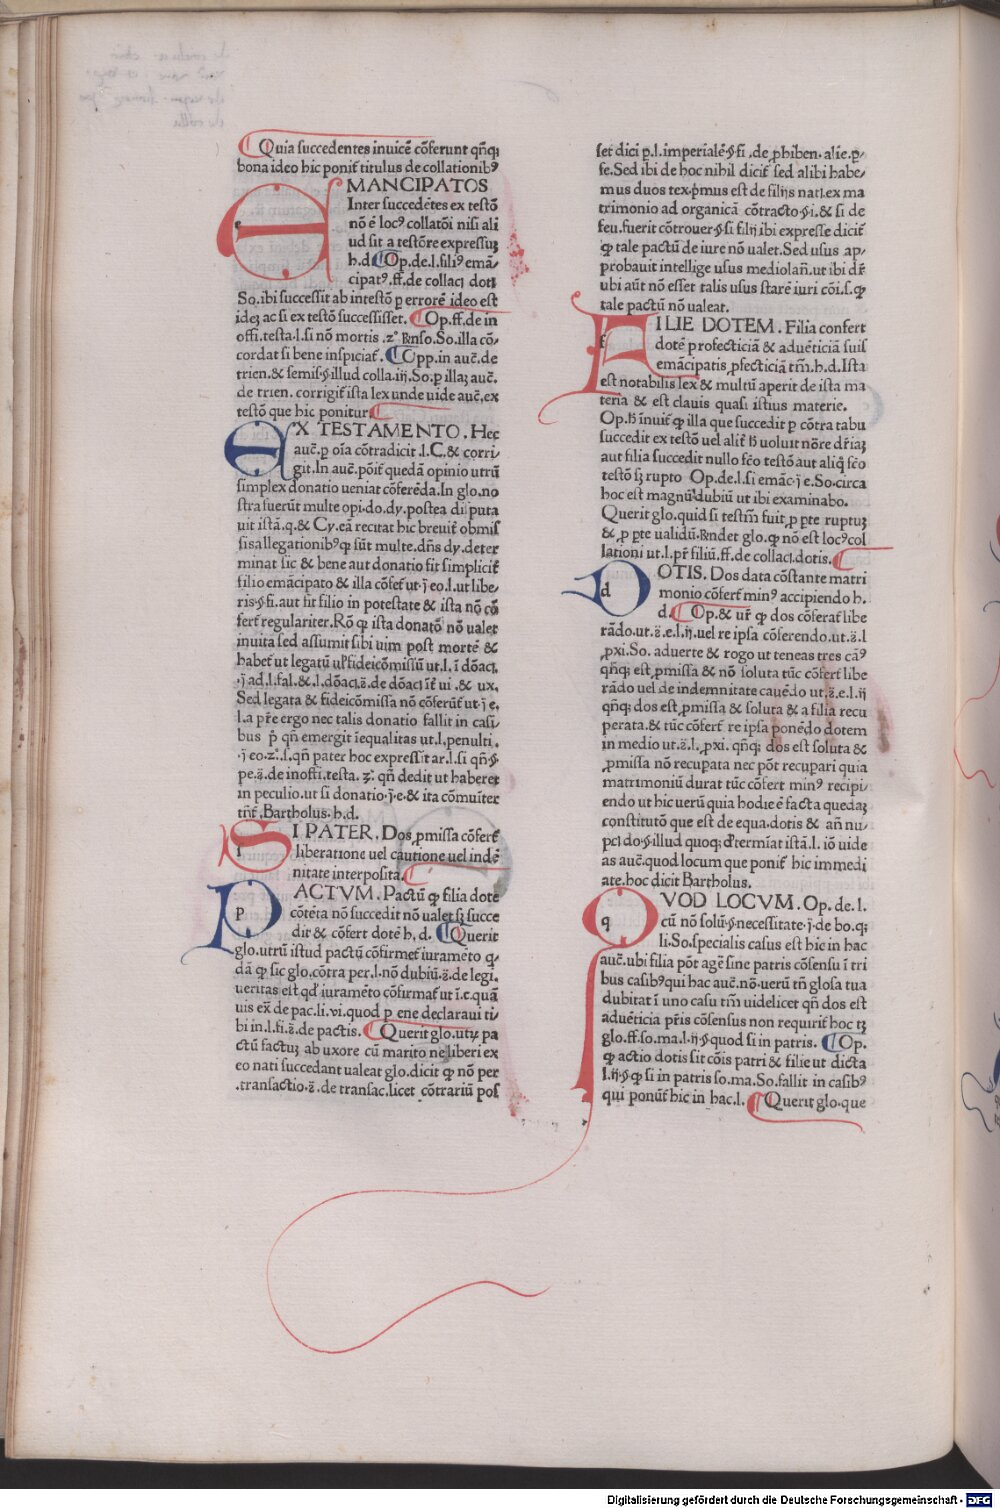 Quia succedentes inuicē cōferunt qñq;
bona ideo hic ponit̄ titulus de collationibꝰ
EMANCIPATOS
Inter succedētes ex testō
nō ē locꝰ collatōi nisi ali
ud sit a testōre expressuꝫ
h.d. Op.de.l.filiꝰ emā/
cipatꝰ.ff.de collaci doti
So.ibi successit ab intestō p errorē ideo est
ideꝫ ac si ex testō successisset. Op.ff.de in
offi.testa.l.si nō mortis .zº Rnso.So.illa cō/
cordat si bene inspiciat̄. Opp.in auc̄.de
trien.& semis.§.illud colla.iij.So.p illaꝫ auc̄.
de trien. corrigit̄ ista lex unde uide auc̄.ex
testō que hic ponitur
EX TESTAMENTO. Hec
auc̄.p oīa cōtradicit .l.C.& corri
git.In auc̄.pōit̄ quedā opinio utrū
simplex donatio ueniat cōferēda.In glo.no
stra fuerūt multe opi.do.dy.postea disputa
uit istā.q.& Cy.eā recitat hic breuit̄ obmis
sis allegationibꝰ ꝙ sūt multe.dñs dy.deter
minat sic & bene aut donatio fit simplicit̄
filio emācipato & illa cōfet̄ ut.j̄ eo.l.ut libe/
ris.§.fi.aut fit filio in potestate & ista nō cō
fert̄ regulariter.Rō ꝙ ista donatō nō ualet
inuita sed assumit sibi uim post mortē &
habet̄ ut legatū ul̓ fideicōmissū ut.l.ī dōaci.
.j̄ ad.l.fal.& .l.dōaci.s̄.de dōaci īt̄ ui .& ux.
Sed legata & fideicōmissa nō cōferūt̄ ut.j̄ e.
l.a p̄re ergo nec talis donatio fallit in casi
bus p̓ qñ emergit īequalitas ut.l.penulti.
.j̄ eo.zº.s.qñ pater hoc expressit ar.l.si qñ.§
pe.s̄.de inoffi.testa. zº. qñ dedit ut haberet
in peculio.ut si donatio.j̄.e.& ita cōmuīter
tn̄t̄ .Bartholus.h.d.
SI PATER. Dos ꝓmissa cōfert̄
liberatione uel cautione uel indē
nitate interposita.
PACTVM. Pactū ꝙ filia dote
cōtēta nō succedit nō ualet sꝫ succe
dit & cōfert dotē h. d. Querit
glo.utrū istud pactū cōfirmet̄ iuramēto q
dā ꝙ sic glo.cōtra per.l.nō dubiū.s̄.de legi.
ueritas est qd̓ iuramēto cōfirmat̄ ut ī.c.quā
uis ex̄ de pac.li.vi.quod p ene declaraui ti/
bi in.l.fi.s̄.de pactis. Querit glo.utꝝ pa
ctū factuꝫ ab uxore cū marito ne liberi ex
eo nati succedant ualeat glo.dicit ꝙ nō per
.transactio.s̄.de transac.licet cōtrariū pos
set dici p.l.imperialē.§.fi .de ꝓhiben.alie.p/
fe.Sed ibi de hoc nihil dicit̄ sed alibi habe/
mus duos tex.p̓mus est de filijs nati.ex ma
trimonio ad organicā cōtracto.§.i.& si de
feu.fuerit cōtrouer.§.si filij ibi expresse dicit̄
ꝙ tale pactū de iure nō ualet.Sed usus ap/
probauit intellige usus mediolañ.ut ibi dr̄
ubi aūt nō esset talis usus starē iuri cōi.s.ꝙ
tale pactū nō ualeat.
FILIE DOTEM. Filia confert
dotē profecticiā & aduēticiā suis
emācipatis ꝓfecticiā tm̄.h.d.Ista
est notabilis lex & multū aperit de ista ma
teria & est clauis quasi istius materie.
Op.h̓ īnuit̄ ꝙ illa que succedit p cōtra tabu
succedit ex testō uel alit̄ h̓ uoluit nōre dr̄iaꝫ
aut filia succedit nullo fc̄o testō aut aliq̓ fc̄o
testō sꝫ rupto Op.de.l.si emāc.j̄ e.So.circa
hoc est magnū dubiū ut ibi examinabo.
Querit glo.quid si testm̄ fuit ꝓ pte ruptuꝫ
& ꝓ pte ualidū.Rndet glo.ꝙ nō est locꝰ col
lationi ut.l.pr̄ filiū.ff.de collaci.dotis.
DOTIS. Dos data cōstante matri
monio cōfert̄ minꝰ accipiendo h.
d. Op.& ur̄ ꝙ dos cōferat̄ libe
rādo.ut.s̄.e.l.ij.uel re ipsa cōferendo.ut.s̄.l
.ꝓxi.So. aduerte & rogo ut teneas tres cāꝰ
qñq; est ꝓmissa & nō soluta tūc cōfert̄ libe
rādo uel de indemnitate cauēdo ut.s̄.e.l.ij
qñq; dos est ꝓmissa & soluta & a filia recu
perata.& tūc cōfert̄ re ipsa ponēdo dotem
in medio ut.s̄.l. ꝓxi. qñq; dos est soluta &
ꝓmissa nō recupata nec pōt recupari quia
matrimoniū durat tūc cōfert̄ minꝰ recipi/
endo ut hic uerū quia hodie ē facta quedaꝫ
constitutō que est de equa.dotis & añ nu/
pci do.§.illud quoq; d̓termīat istā.l. iō uide
as auc̄.quod locum que ponit̄ hic immedi
ate.hoc dicit Bartholus.
QVOD LOCVM. Op. de.l.
cū nō solū.§.necessitate.j̄.de bo.q;
li.So.specialis casus est hic in hac
auc̄.ubi filia pōt agē sine patris cōsensu ī tri
bus casibꝰ qui hac auc̄.nō.uerū tñ glosa tua
dubitat ī uno casu tm̄ uidelicet qñ dos est
aduēticia p̄ris cōsensus non requirit̄ hoc tꝫ
glo.ff.so.ma.l.ij.§.quod si in patris. Op.
ꝙ actio dotis sit cōis patri & filie ut dicta
l.ij.§.ꝙ si in patris so.ma.So.fallit in casibꝰ
qui ponūt̄ hic in hac.l. Querit glo.que
Digitalisierung gefördert durch die Deutsche Forschungsgemeinschaft - DFG